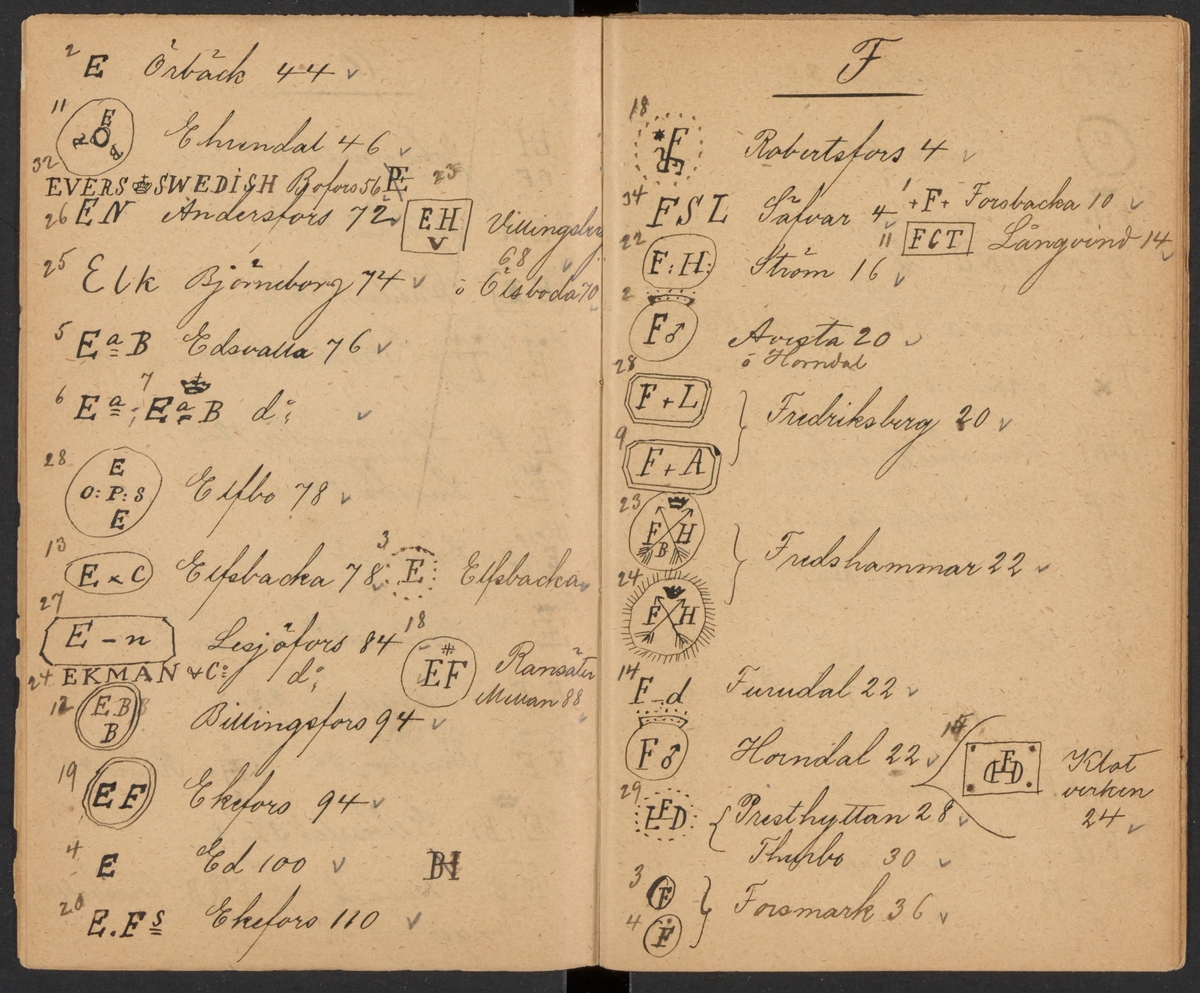 2 E Örbäck 44 ✓
11 E R O P Ehrendal 46 ✓
32 EVERS SWEDISH Bofors 56 23
26 EN Andersfors 72 ✓ EH V Villingsbr
68 ✓
25 Elk Björneborg 74 ✓ ö Elsboda 70
5 EaB Edsvalla 76 ✓
6 Ea; 7 EaB do; ✓
28 E O:P:S E Elfbo 78 ✓
13 E×C Elfsbacka 78 ✓ 3 E Elfsbacka
27 E-n Lesjöfors 84
24 EKMAN & Co: do; 18 EF Ransäter
Mellan 88
12 EB B Billingsfors 94 ✓
19 EF Ekefors 94 ✓
4 E Ed 100 ✓
20 E.Fs Ekefors 110 ✓
F
18 F Robertsfors 4 ✓
34 FSL Säfvar 4 1 +F+ Forsbacka 10 ✓
11 FCT Långvind 14
22 F:H: Ström 16 ✓
2 F♂ Avesta 20 ✓
ö Horndal
28 F+L Fredriksberg 20 ✓
9 F+A
23 F H B Fredshammar 22 ✓
24 F H
14 F-d Furudal 22 ✓
F♂ Horndal 22 ✓ Klot
verken
24 ✓
29 LFD Presthyttan 28 ✓
Thurbo 30 ✓
3 F Forsmark 36 ✓
4 F